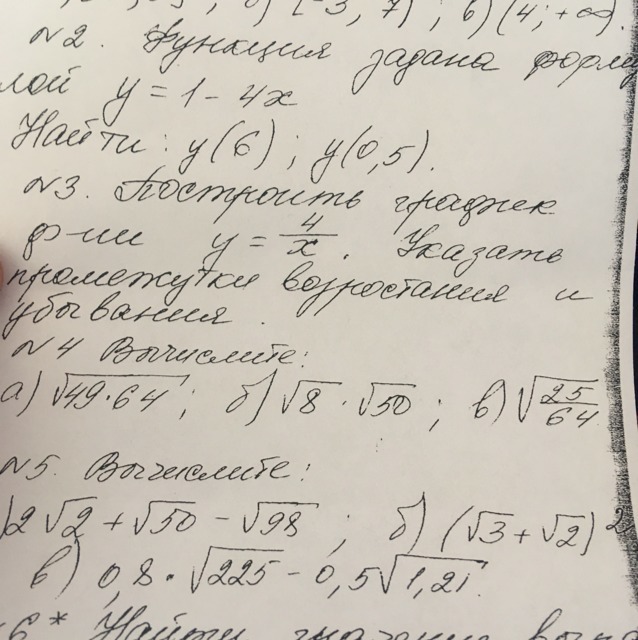 б) (-3, 7) ; в) (4; +∞).
№2. Функция задана форму
лой y = 1 - 4x
Найти: y(6) ; y(0,5).
№3. Построить график
ф-ии y = 4/x . Указать
промежутки возростания и
убывания.
№4 Вычислите:
а) √49·64 ; б) √8 · √50 ; в) √25/64
№5. Вычислите:
) 2√2 + √50 - √98 ; б) (√3 + √2)²
в) 0,8 · √225 - 0,5√1,21.
6* Найти значение